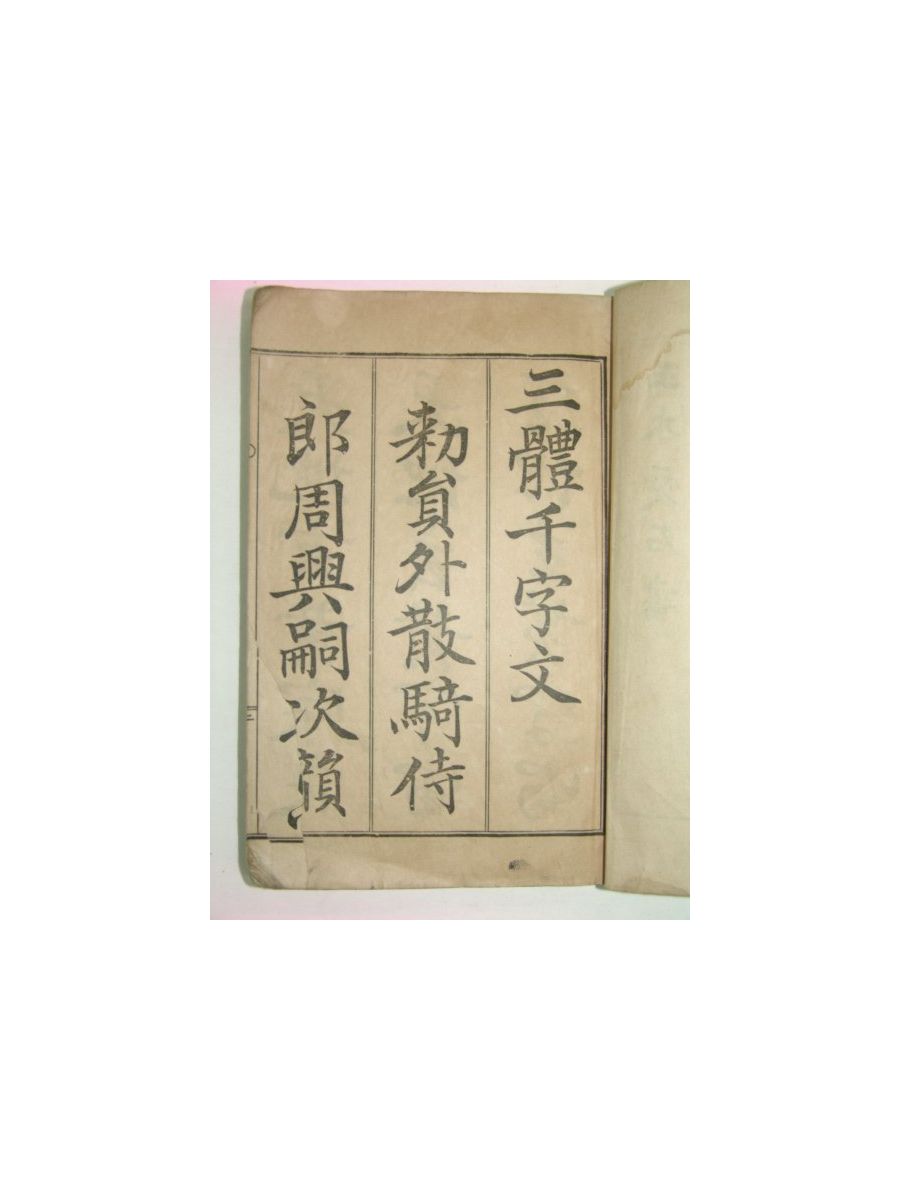 三體千字文
勅員外散騎侍
郎周興嗣次韻